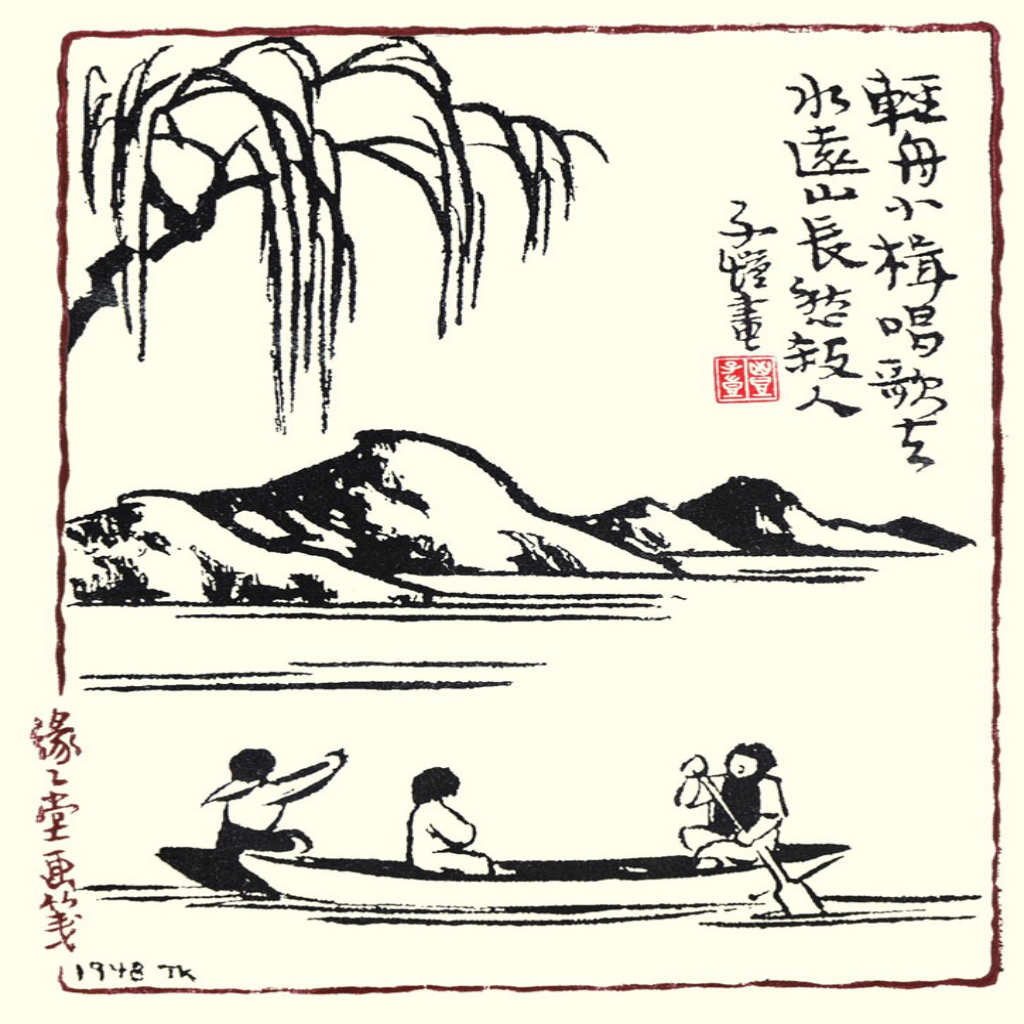 輕舟小楫唱歌去
水遠山長愁殺人
子愷畫
豐子愷
緣緣堂画箋
1948 TK